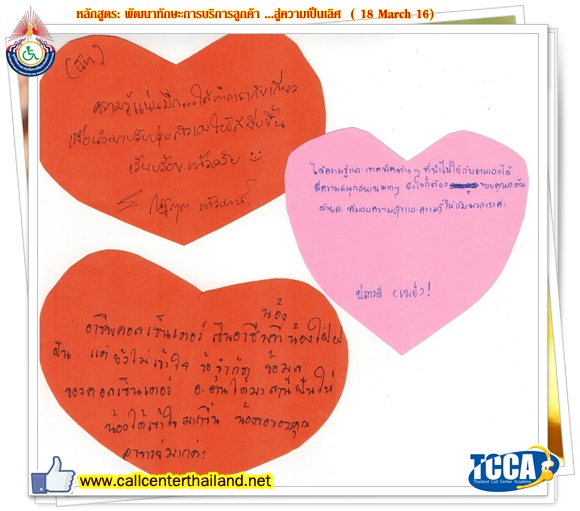 หลักสูตร: พัฒนาทักษะการบริการลูกค้า ...สู่ความเป็นเลิศ ( 18 March 16)
ความรู้แน่นปึก...ได้
เพื่อนำมาปรับปรุงตัวเองให้ดียิ่งขึ้น
เรียบร้อยแล้วครับ
ได้ความรู้และเทคนิคต่างๆ ที่นำไปใช้กับงานเองได้
มีความสนุกสนานมากๆ ยังไงก็ต้อง ขอบคุณอ.อ้น
ด้วยค่ะ ที่มอบความสุขและความรู้ให้กับพวกเราค่ะ
น้อง
อาชีพคอลเซ็นเตอร์ เป็นอาชีพที่น้องใฝ่ฝ
ฝัน แต่ยังไม่เข้าใจ ข้อจำกัด ข้อมูล
ของคอลเซ็นเตอร์ อ.อ้นได้มาสานฝันให้
น้องได้เข้าใจมากขึ้น น้องขอขอบคุณ
อาจารย์มากค่ะ
www.callcenterthailand.net
TCCA
Thailand Call Center Academy